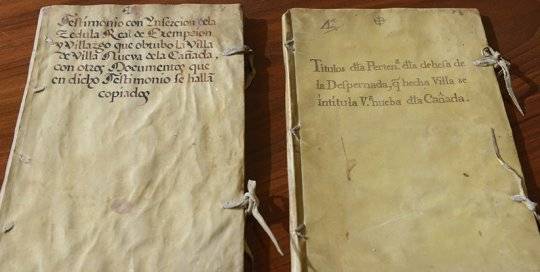 Testimonio con Ynsercion dela
Zedula Real de Exempcion
y Villazgo que obtubo la Villa
de Villa Nueva de la Cañada,
con otros Documentos que
en dicho Testimonio se hallan
copiados
Titulos dla Pertenª dla dehesa de
la Despernada, q̃ hecha Villa se
intitula Vª nueba dla Cañada.